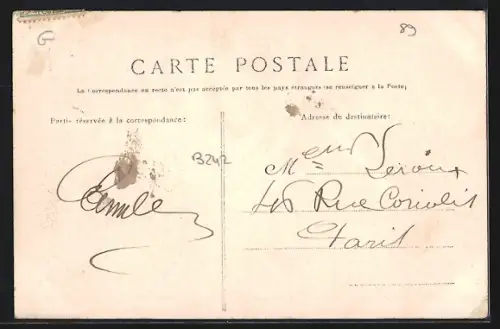 G
89
CARTE POSTALE
La Correspondance au recto n'est pas acceptée par tous les pays étrangers (se renseigner à la Poste)
Partie réservée à la correspondance:
Adresse du destinataire:
B242
Leroux
46 Rue Coriolis
Paris